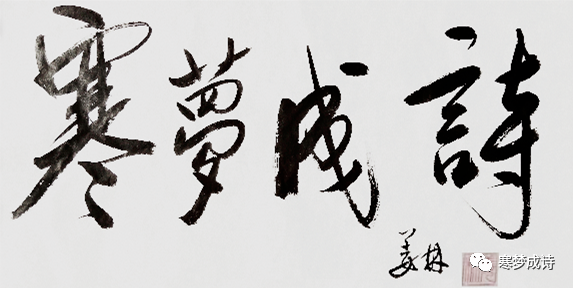 寒夢成詩
姜林
寒梦成诗